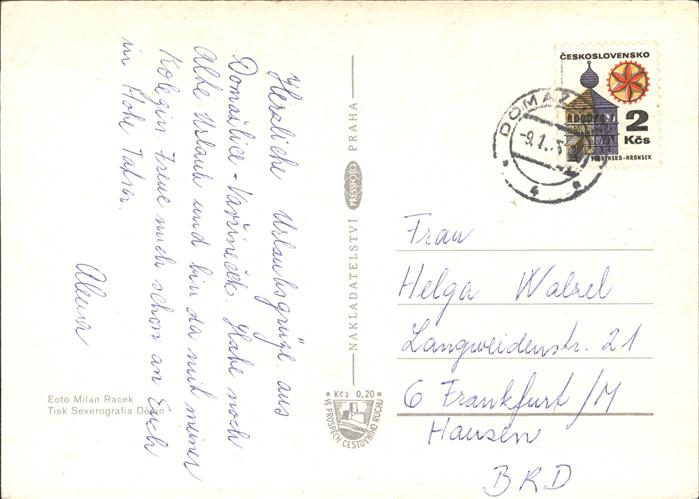 Herzliche Urlaubsgrüße aus
Domažlice - Vavřineček. Habe noch
Alte Urlaub und bin da mit meiner
Kolegin Freue mich schon an Euch
in Hohe Tatra.
Alena
Foto Milan Racek
Tisk Severografia Děčín
NAKLADATELSTVÍ PRESSFOTO PRAHA
Kčs 0,20
VE PROSPĚCH CESTOVNÍHO RUCHU
ČESKOSLOVENSKO
2
Kčs
SLOVENSKO-HRONSEK
-9.1
4
Frau
Helga Walzel
Langweidenstr. 21
6 Frankfurt/M
Hausen
BRD